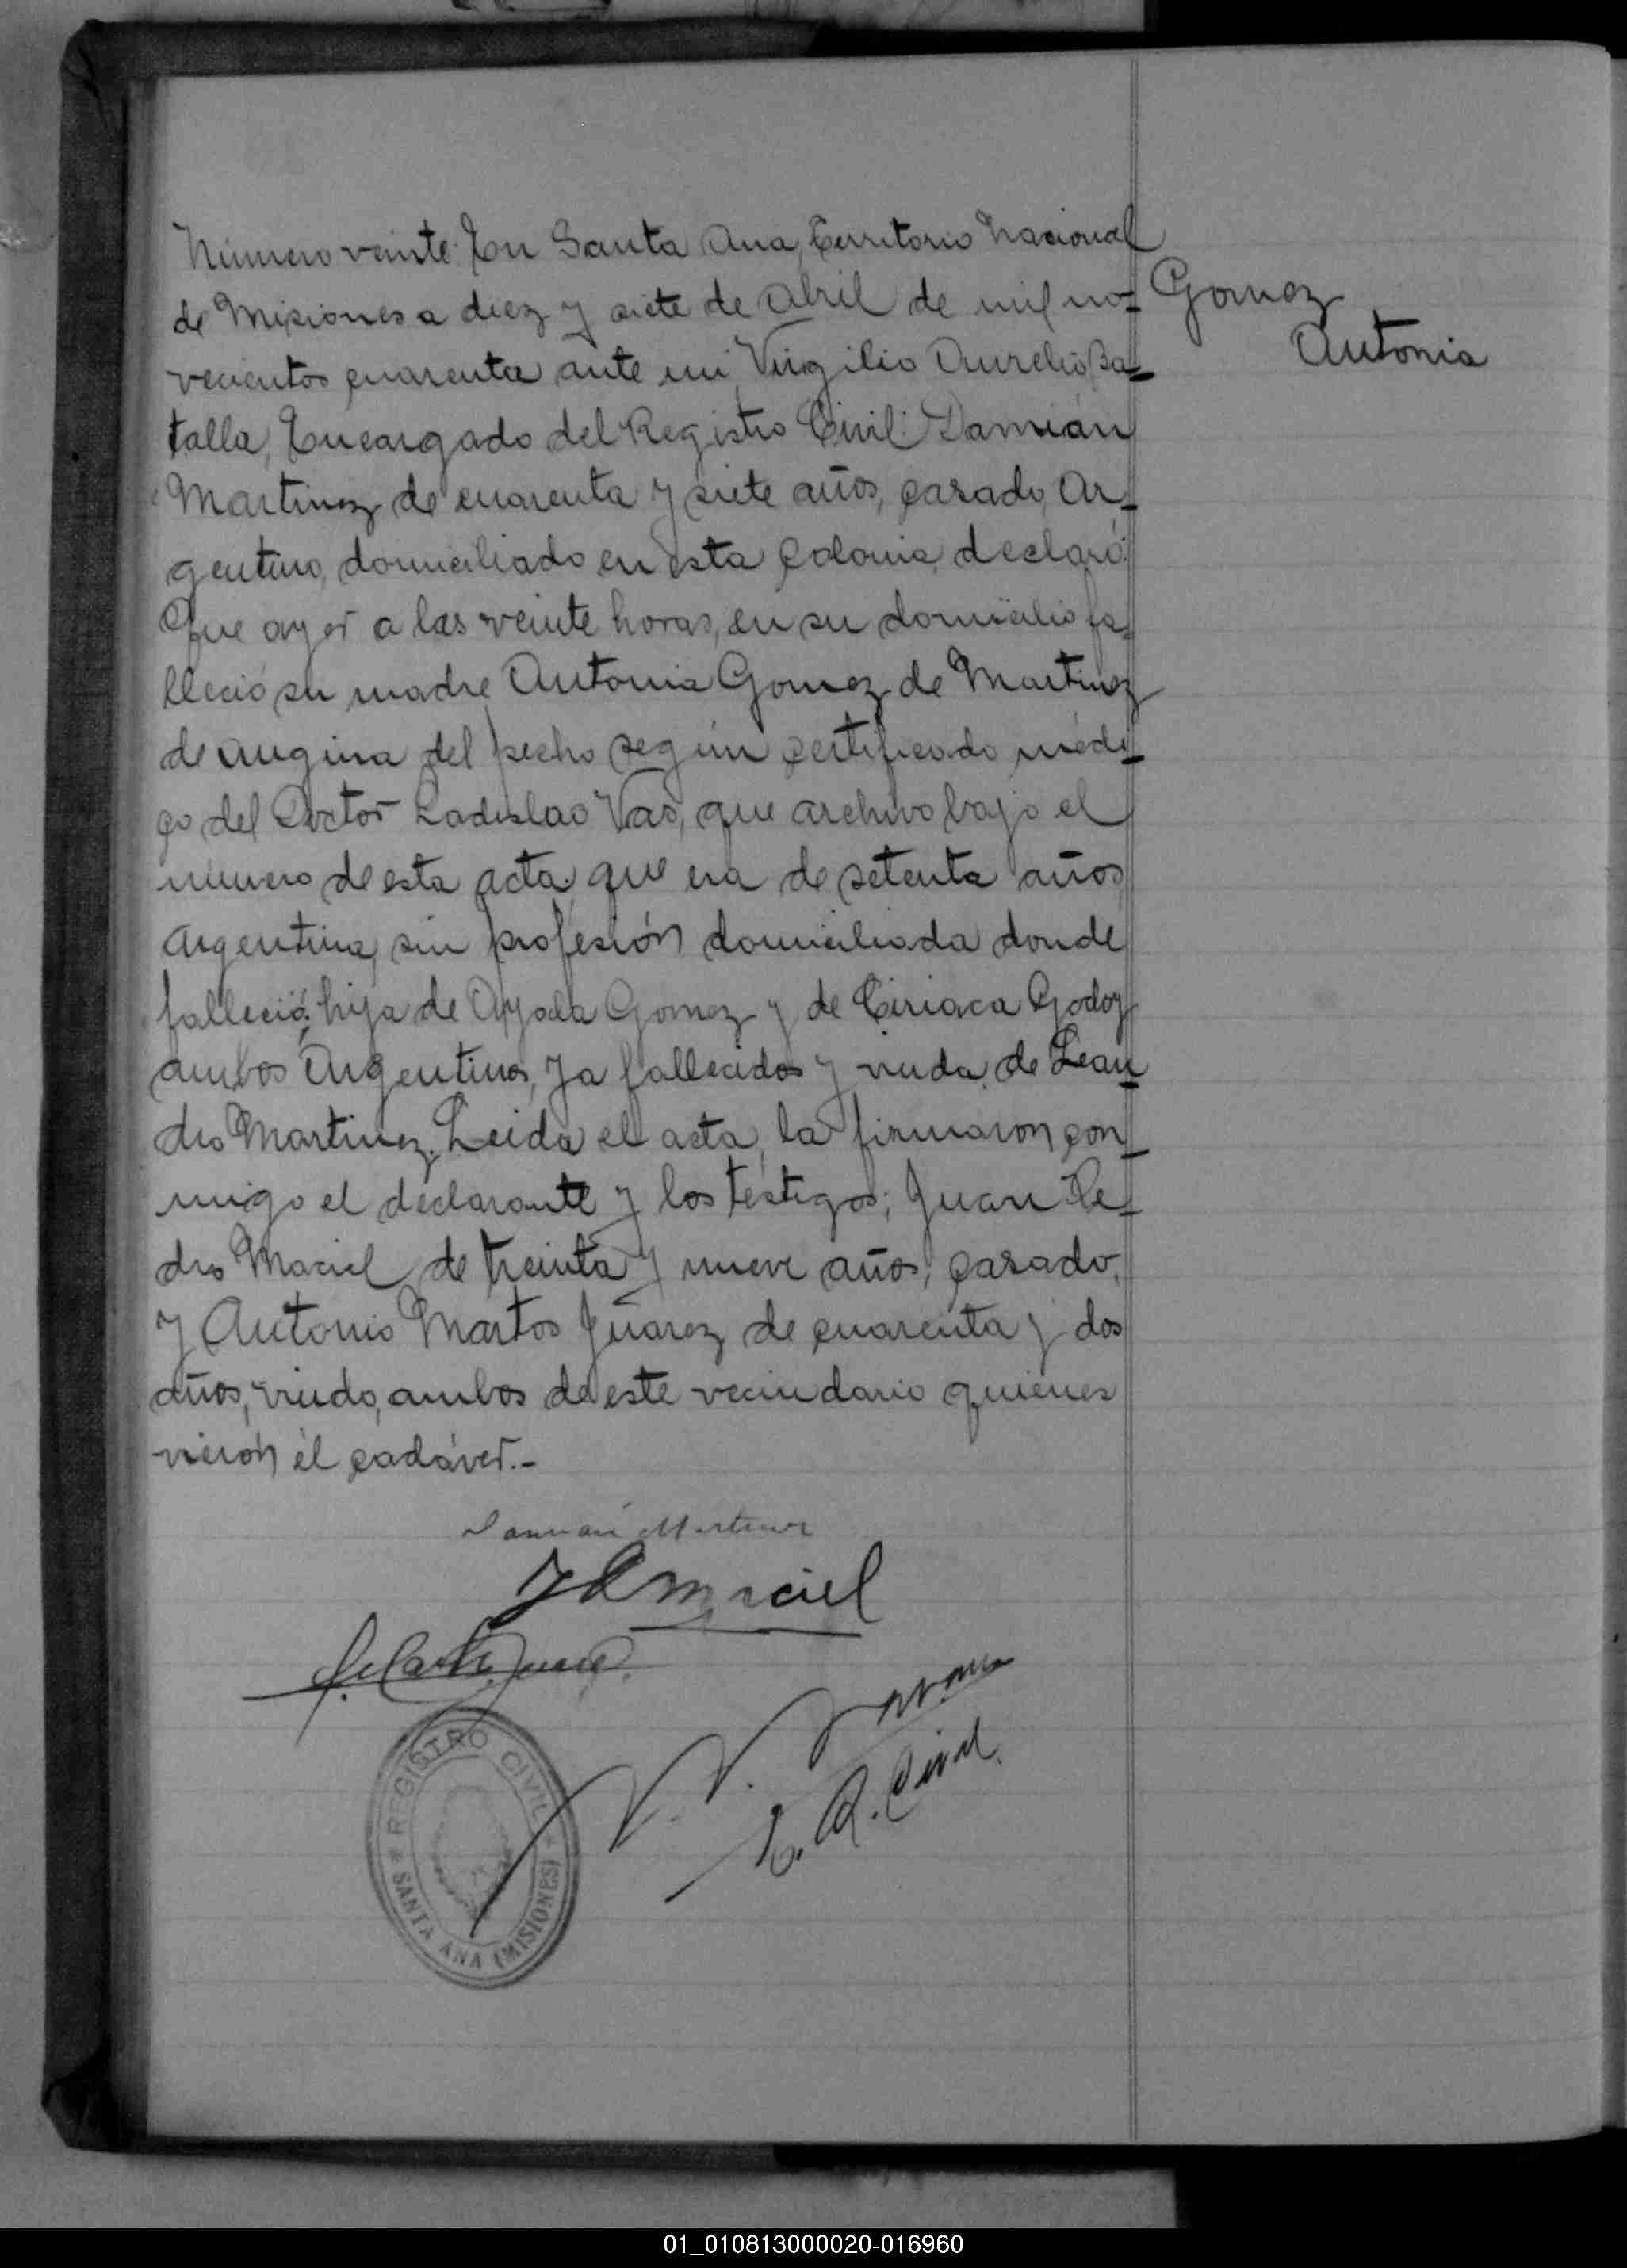 Número veinte: En Santa Ana, Territorio Nacional
de Misiones a diez y siete de Abril de mil no-
vecientos cuarenta ante mi Virgilio Aurelio Ba-
talla, Encargado del Registro Civil: Damián
Martinez de cuarenta y siete años, casado, Ar-
gentino, domiciliado en esta Colonia, declaró:
Que ayer a las veinte horas, en su domicilio fa-
lleció su madre Antonia Gomez de Martinez
de angina del pecho según certificado médi-
co del Doctor Ladislao Vas, que archivo bajo el
número de esta acta; que era de setenta años,
Argentina, sin profesión domiciliada donde
falleció; hija de Ayala Gomez y de Ciriaca Godoy
ambos Argentinos, ya fallecidos y viuda de Lean-
dro Martinez. Leida el acta, la firmaron con-
migo el declarante y los testigos; Juan Pe-
dro Maciel de treinta y nueve años, casado,
y Antonio Martos Juarez de cuarenta y dos
años, viudo, ambos de este vecindario quienes
vieron el cadáver.-
Gomez
Antonia
Damian Martinez
J P Maciel
E. R. Civil
REGISTRO CIVIL
SANTA ANA (MISIONES)
01_010813000020-016960